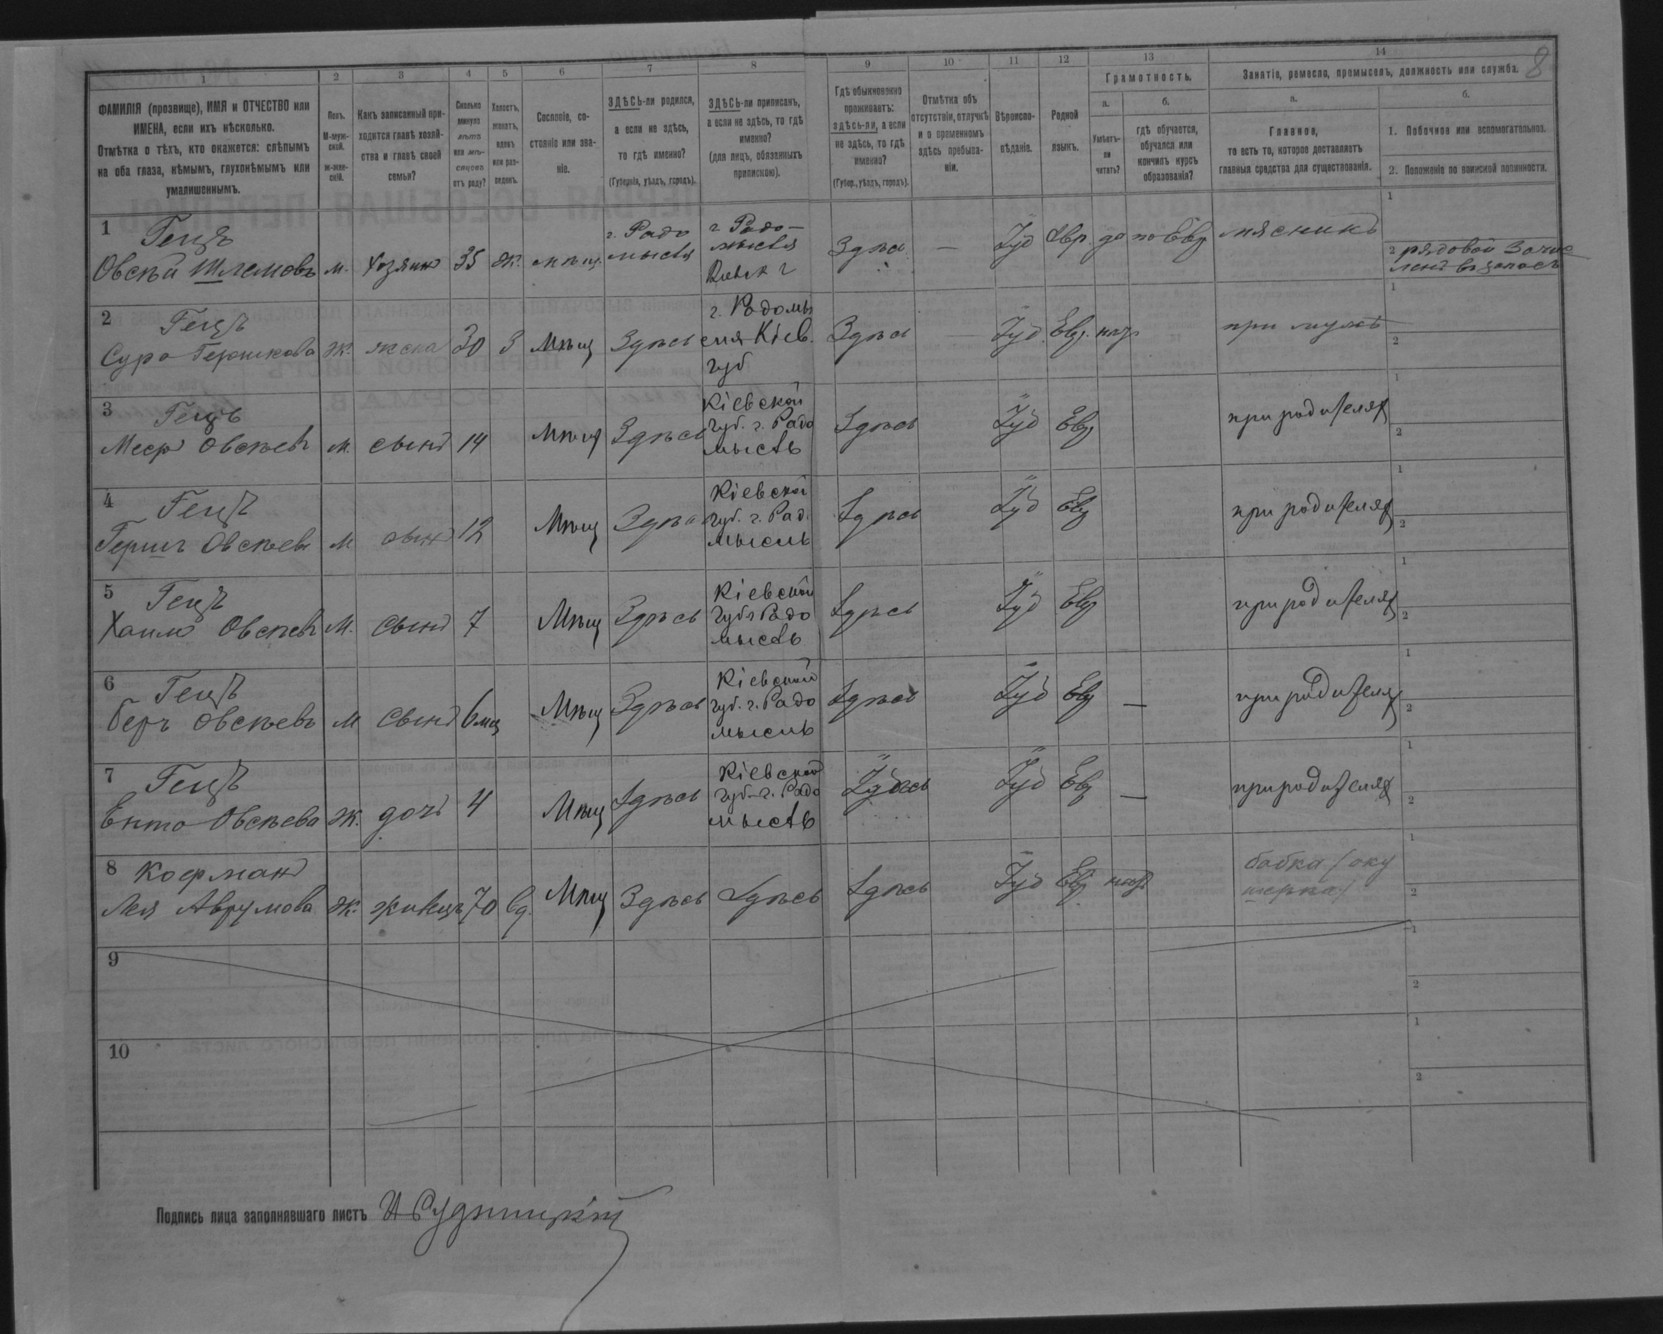 8
1 2 3 4 5 6 7 8 9 10 11 12 13 14
ФАМИЛІЯ (прозвище), ИМЯ и ОТЧЕСТВО или
ИМЕНА, если ихъ нѣсколько.
Отмѣтка о тѣхъ, кто окажется: слѣпымъ
на оба глаза, нѣмымъ, глухонѣмымъ или
умалишеннымъ.
Полъ.
М-муж-
ской.
Ж-жен-
скій.
Какъ записанный при-
ходится главѣ хозяй-
ства и главѣ своей
семьи?
Сколько
минуло
лѣтъ
или мѣ-
сяцевъ
отъ роду?
Холостъ,
женатъ,
вдовъ
или раз-
веденъ.
Сословіе, со-
стояніе или зва-
ніе.
ЗДѢСЬ-ли родился,
а если не здѣсь,
то гдѣ именно?
(Губернія, уѣздъ, городъ).
ЗДѢСЬ-ли приписанъ,
а если не здѣсь, то гдѣ
именно?
(для лицъ, обязанныхъ
припискою).
Гдѣ обыкновенно
проживаетъ:
здѣсь-ли, а если
не здѣсь, то гдѣ
именно?
(Губер., уѣздъ, городъ).
Отмѣтка объ
отсутствіи, отлучкѣ
и о временномъ
здѣсь пребыва-
ніи.
Вѣроиспо-
вѣданіе.
Родной
языкъ.
Грамотность.
а.
Умѣетъ-
ли
читать?
б.
гдѣ обучается,
обучался или
кончилъ курсъ
образованія?
Занятіе, ремесло, промыселъ, должность или служба.
а.
Главное,
то есть то, которое доставляетъ
главныя средства для существованія.
б.
1. Побочное или вспомогательное.
2. Положеніе по воинской повинности.
1 Гецъ
Овсѣй Шлемовъ м. хозяинъ 35 ж. мѣщ г. Радо
мысля г. Радо-
мысля
Здѣсь — Іуд Евр да по Евр мясникъ
1
2 рядовой
2 Гецъ
Сура Гершкова ж. жена 30 З Мѣщ Здѣсь г. Радомы
сля Кіев.
губ Здѣсь — Іуд. Евр. нѣт при мужѣ
1
2
3 Гецъ
Меер Овсѣевъ м. сынъ 14 Мѣщ Здѣсь Кіевской
губ. г. Радо
мысль Здѣсь Іуд Евр при родителях
1
2
4 Гецъ
Гершъ Овсѣевъ м сынъ 12 Мѣщ Здѣсь Кіевской
губ. г. Рад.
мысль Здѣсь Іуд Евр при родителях
1
2
5 Гецъ
Хаимъ Овсѣевъ м. сынъ 7 Мѣщ Здѣсь Кіевской
губ г Радо
мысль Здѣсь Іуд Евр при родителях
1
2
6 Гецъ
Беръ Овсѣевъ м сынъ 6 мц Мѣщ Здѣсь Кіевской
губ. г. Радо
мысль Здѣсь Іуд Евр — при родителях
1
2
7 Гецъ
Ента Овсѣева ж. дочь 4 Мѣщ Здѣсь Кіевской
губ. г. Радо
мысль Здѣсь Іуд Евр — при родителях
1
2
8 Кофман
Лея Аврумова ж. 70 вд. Мѣщ Здѣсь Здѣсь Здѣсь Іуд Евр нѣт бабка (аку
шерка)
1
2
9
1
2
10
1
2
Подпись лица заполнявшаго листъ И Рудницкій